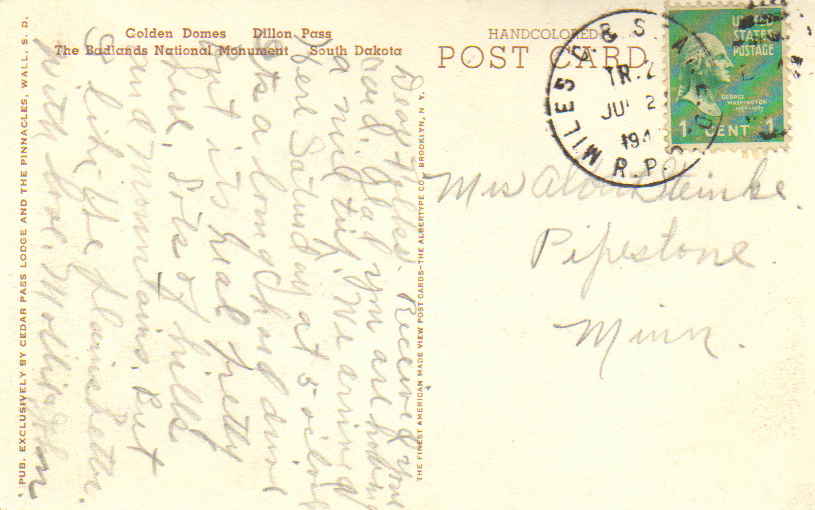 Golden Domes Dillon Pass
The Badlands National Monument South Dakota
HANDCOLORED
POST CARD
UNITED
STATES
POSTAGE
GEORGE
WASHINGTON
1 CENT 1
MILES C. & S.
TR. 2
JUL 2
194
R.P.O.
Dear Folks. Received your
card, glad you are having
a nice trip. We arrived
here Saturday at 5 o'clock
its a long & hard drive
but it's real pretty
here, lots of hills
and mountains, but
I like the plains better.
with love, Mollie & John
Mrs Steinke.
Pipestone
Minn.
PUB. EXCLUSIVELY BY CEDAR PASS LODGE AND THE PINNACLES, WALL, S. D.
THE FINEST AMERICAN MADE VIEW POST CARDS—THE ALBERTYPE CO., BROOKLYN, N. Y.